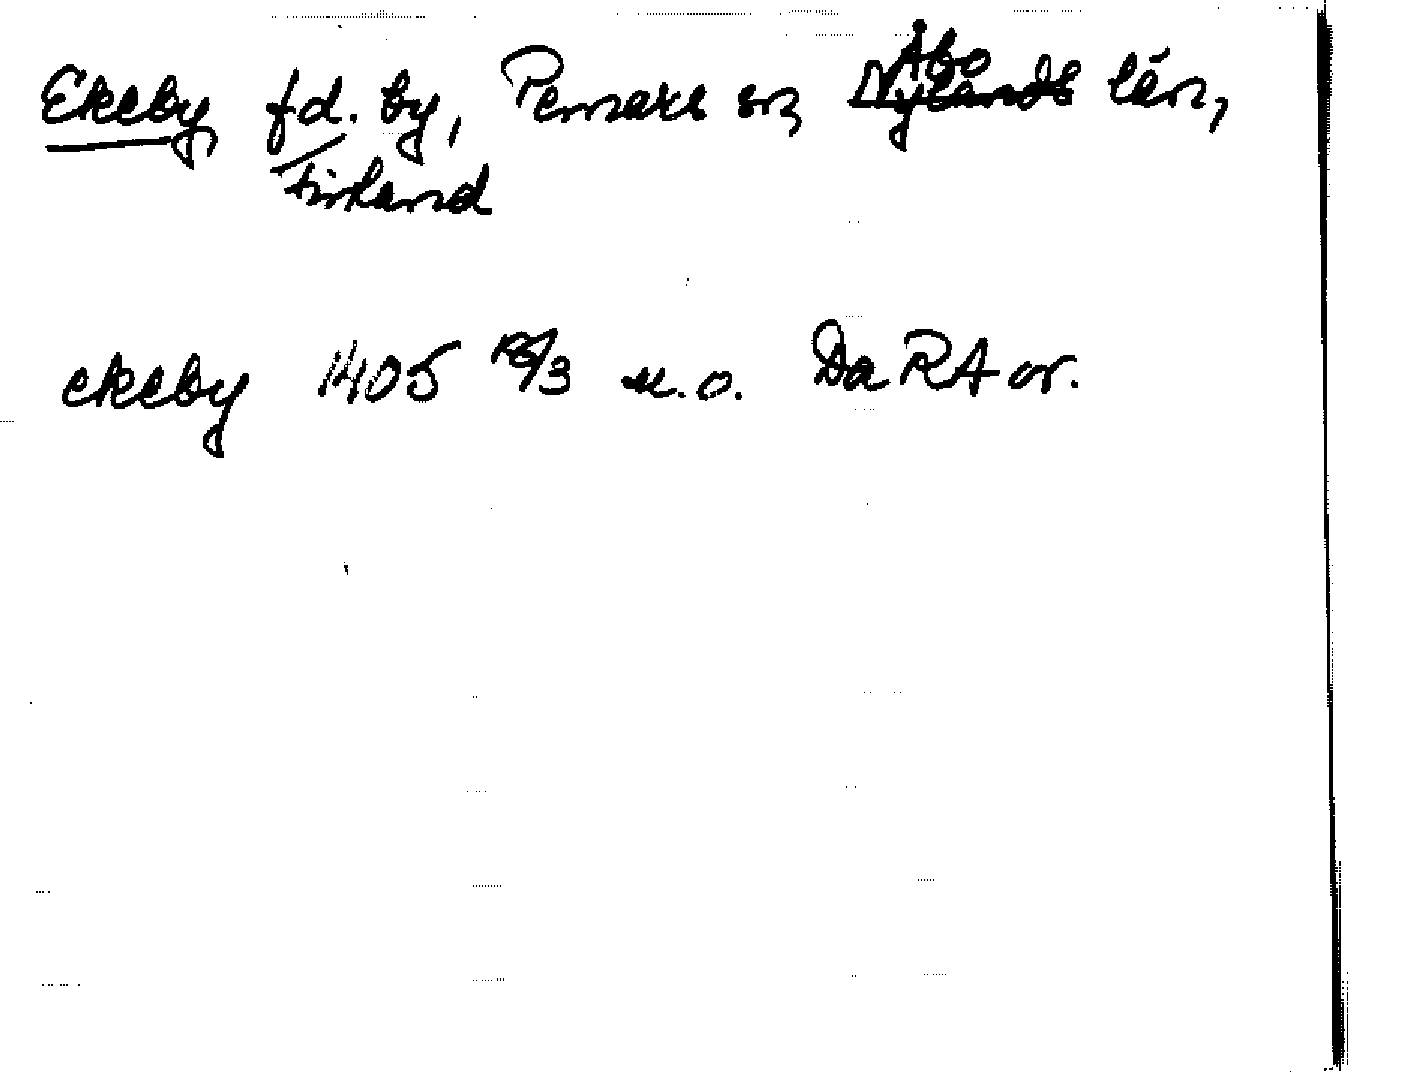 Ekeby fd. by, Pemars sn, Åbo län,
Finland
ekeby 1405 /3 u.o. Da RA or.